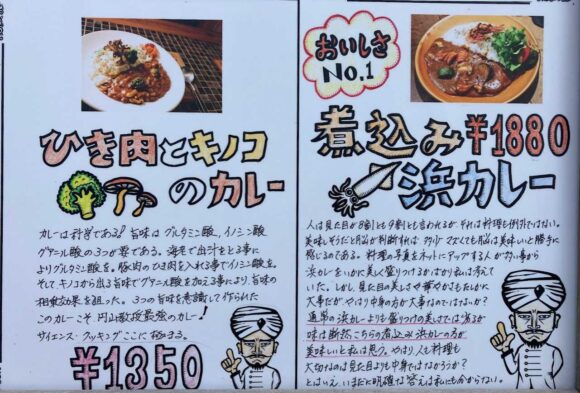 ひき肉とキノコ
のカレー
カレーは科学である! 旨味は グルタミン酸、イノシン酸
グアニル酸の3つが要である。海老で出汁をとる事に
よりグルタミン酸を。豚肉のひき肉を入れる事でイノシン酸を。
そして、キノコから出る旨味でグアニル酸を加える事により、旨味の
相乗効果を狙った。3つの旨味を意識して作られた
このカレーこそ、円山教授最強のカレー!
サイエンス・クッキングここに極まる。
¥1350
おいしさ
No.1
煮込み ¥1880
浜カレー
人は見た目が8割とも9割とも言われるが、それは料理も例外ではない。
美味しそうだと脳が判断すれば、多少マズくても脳は美味いと勝手に
感じるのである。料理の写真をネットにアップする人が多い事から
浜カレーをいかに美しく盛りつけるかばかり私は考えて
いた。しかし、見た目の美しさや華やかさもたしかに
大事だがやはり中身の方が大事なのではないか?
通常の浜カレーよりも盛りつけの美しさでは劣るが
味は断然こちらの煮込み浜カレーの方が
美味しいと私は思う。やはり人も料理も
大切なのは見た目よりも中身ではなかろうか?
とはいえ、いまだに明確な答えは私にも分からない。